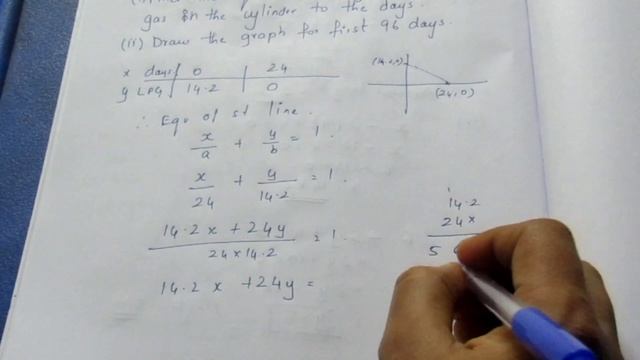 gas in the cylinder to the days.
(ii) Draw the graph for first 96 days.
x days 0 24
y LPG 14.2 0
(24,0)
∴ Equ of st line.
x/a + y/b = 1.
x/24 + y/14.2 = 1.
14.2x + 24y / 24×14.2 = 1.
14.2 x + 24y =
14.2
24 ×
5